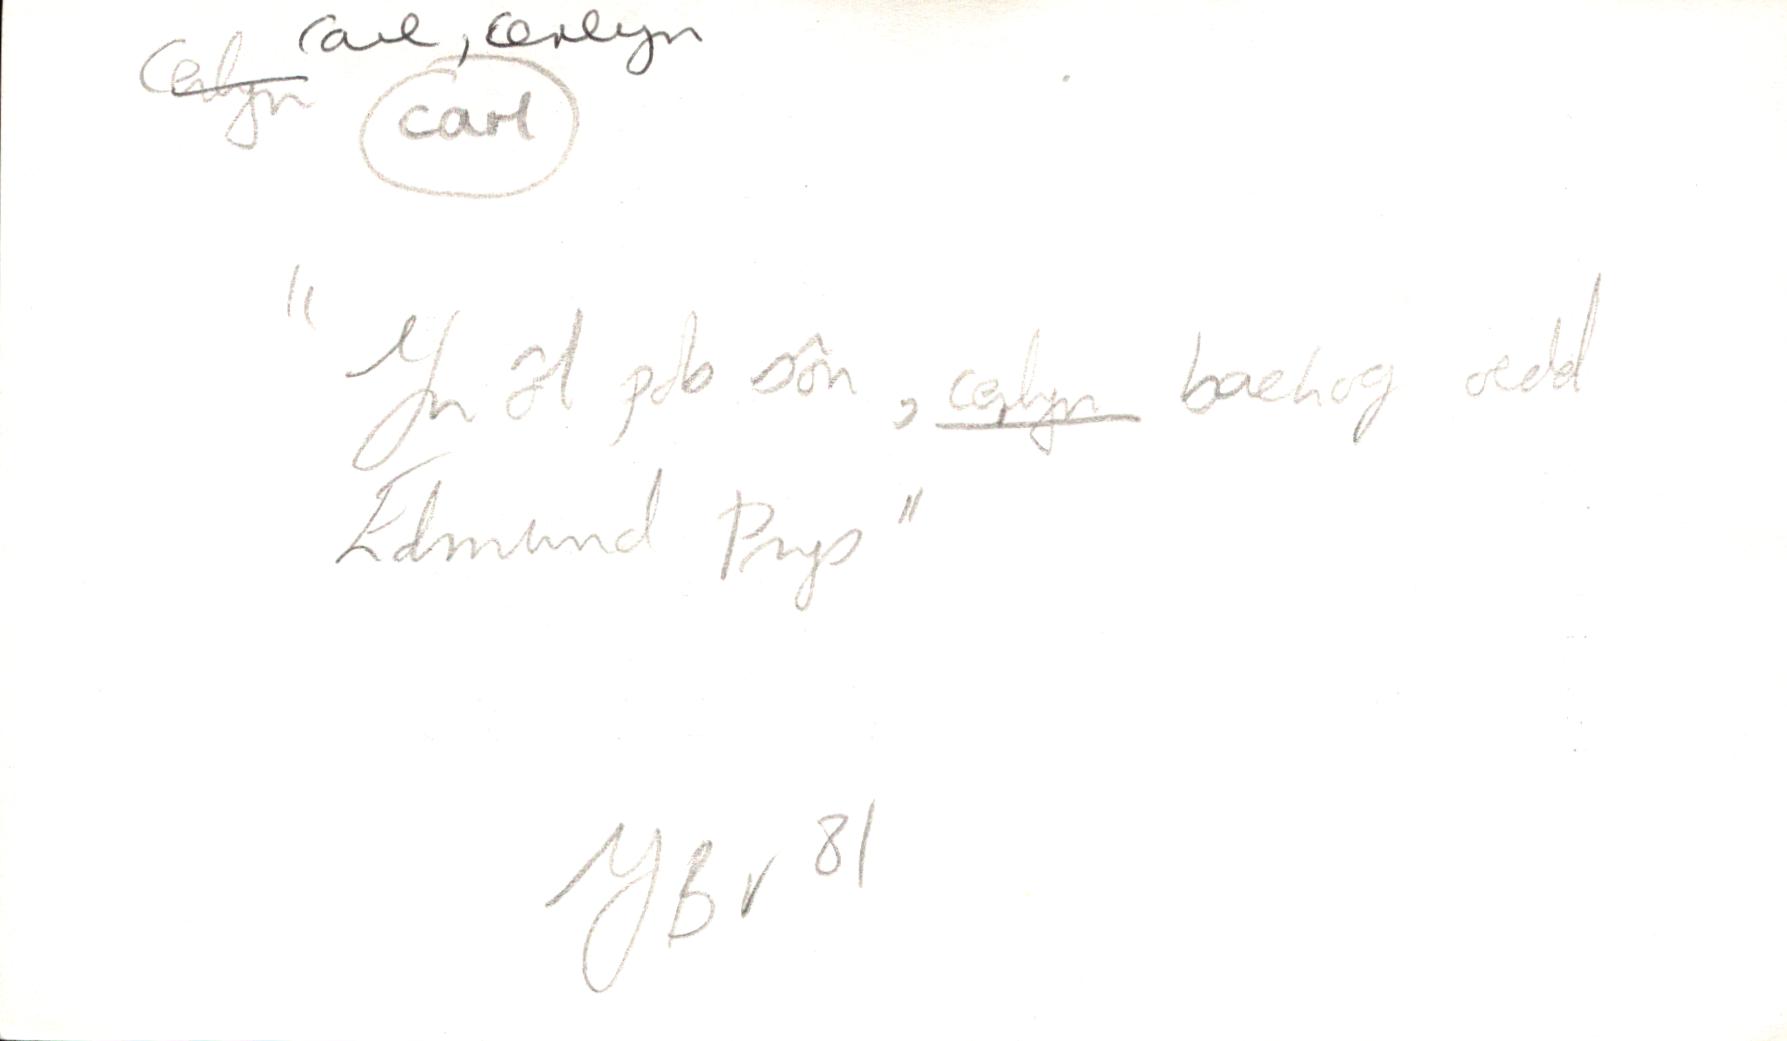 carl, cerlyn
Cerlyn
carl
"Yn ôl pob sôn, cerlyn bachog oedd
Edmund Prys"
YB v 81